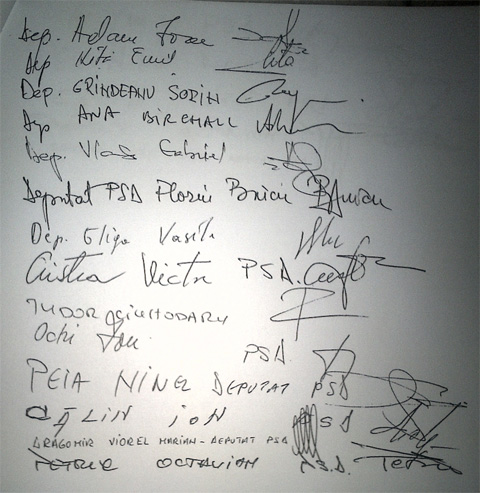 Dep. Adam Ioan
Dep Nita Emil
Dep. GRINDEANU SORIN
Dep ANA BIRCHALL
Dep. Vlase Gabriel
Deputat PSD Florin
Dep. Gliga Vasile
Cristea Victor PSD.
TUDOR CIUHODARU
Ochi Ion
PSD.
PEIA NINEL DEPUTAT PSD
CĂLIN ION PSD
DRAGOMIR VIOREL MARIAN - DEPUTAT PSD
PETREA OCTAVIAN P.S.D.